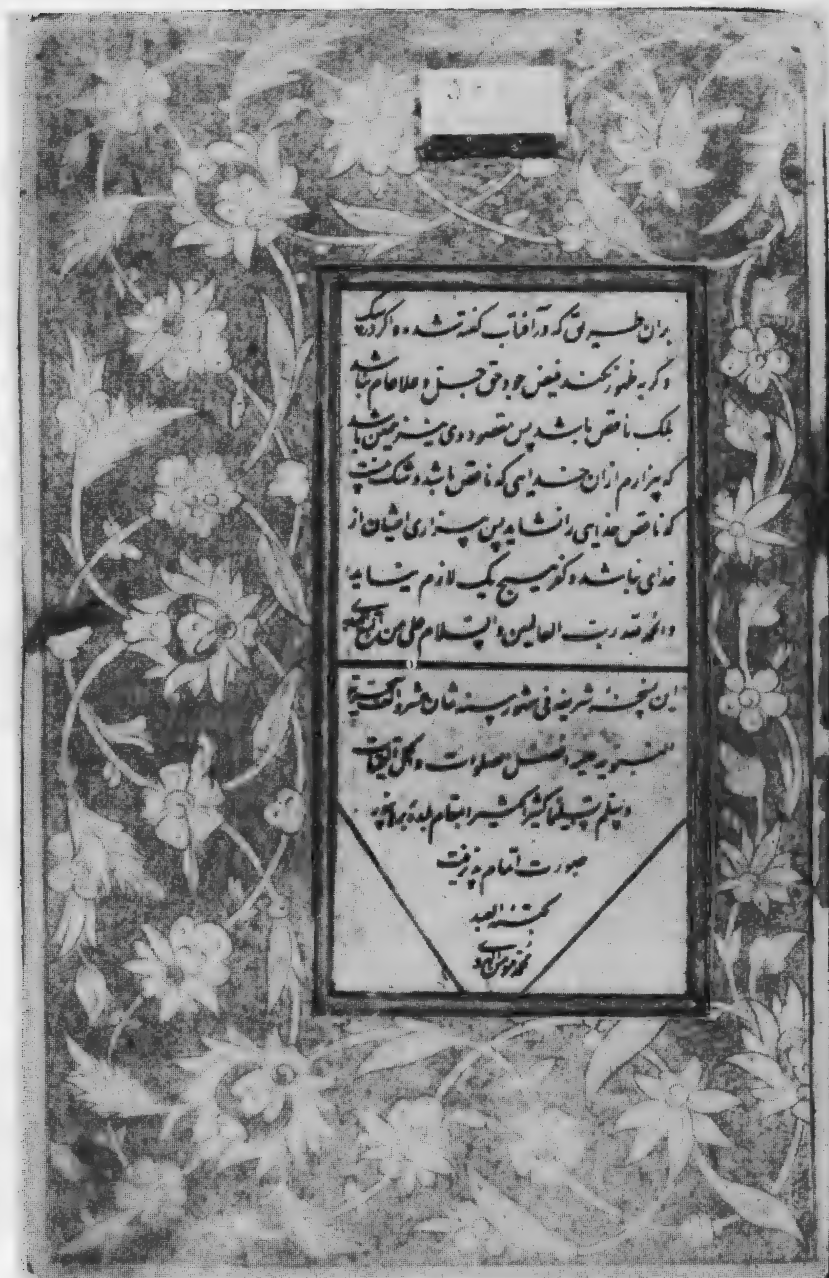 بدان طریق که در آفتاب گفته شده و اگر در سگ
و گربه ظهور نکند فیض جود حق جل و علا عام نباشد
بلکه ناقص باشد پس مقصود وی نیز همین باشد
که بیزارم از آن خدایی که ناقص باشد و شک نیست
که ناقص خدایی را نشاید پس بیزاری ایشان از
خدای نباشد و کفر هیچ یک لازم نیاید
والحمد لله رب العالمین والسلام علی من اتبع الهدی
این نسخه شریفه فی شهور سنه ثمان عشر و الف هجریة
النبویه علیه افضل صلوات و اکمل التحیات
و سلم تسلیما کثیرا کثیرا بمقام بلدة برهانپور
صورت اتمام پذیرفت
کتبه العبد
محمد مومن